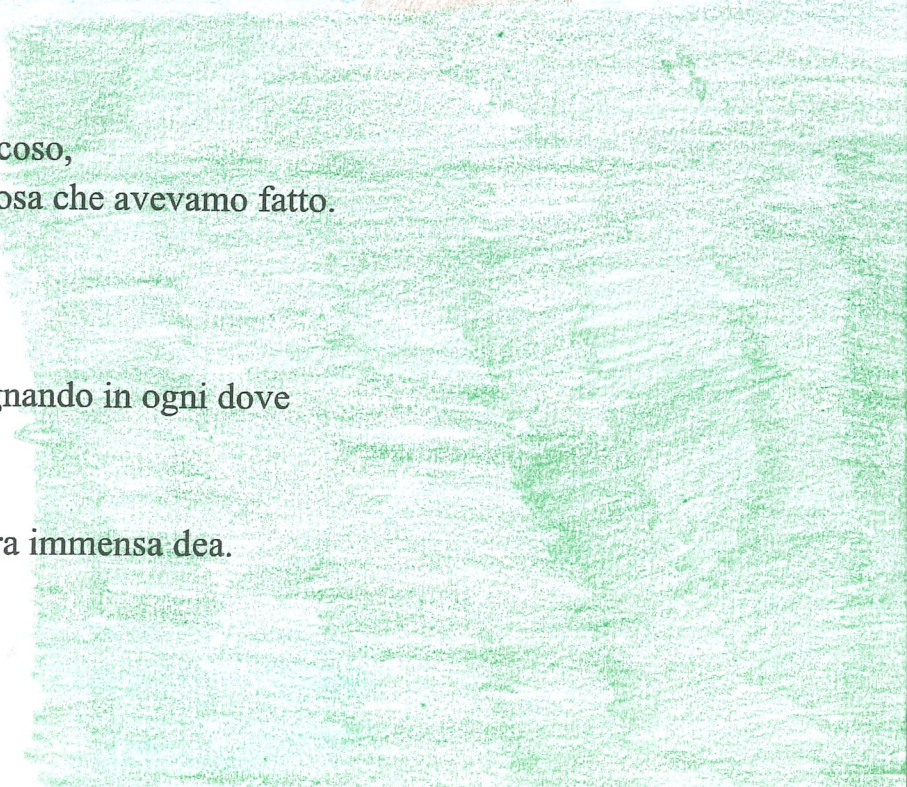 coso,
osa che avevamo fatto.
gnando in ogni dove
ra immensa dea.